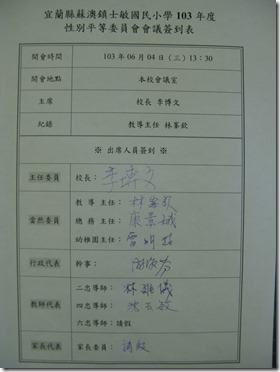 宜蘭縣蘇澳鎮士敏國民小學 103 年度
性別平等委員會會議簽到表
開會時間 103 年 06 月 04 日（三）13：30
開會地點 本校會議室
主席 校長 李博文
紀錄 教導主任 林峯欽
※ 出席人員簽到 ※
主任委員 校長： 李博文
當然委員 教 導 主任： 林峯欽
總 務 主任： 康景城
幼稚園主任：
行政代表 幹事：
教師代表 二忠導師：
四忠導師：
六忠導師：請假
家長代表 家長委員： 請假